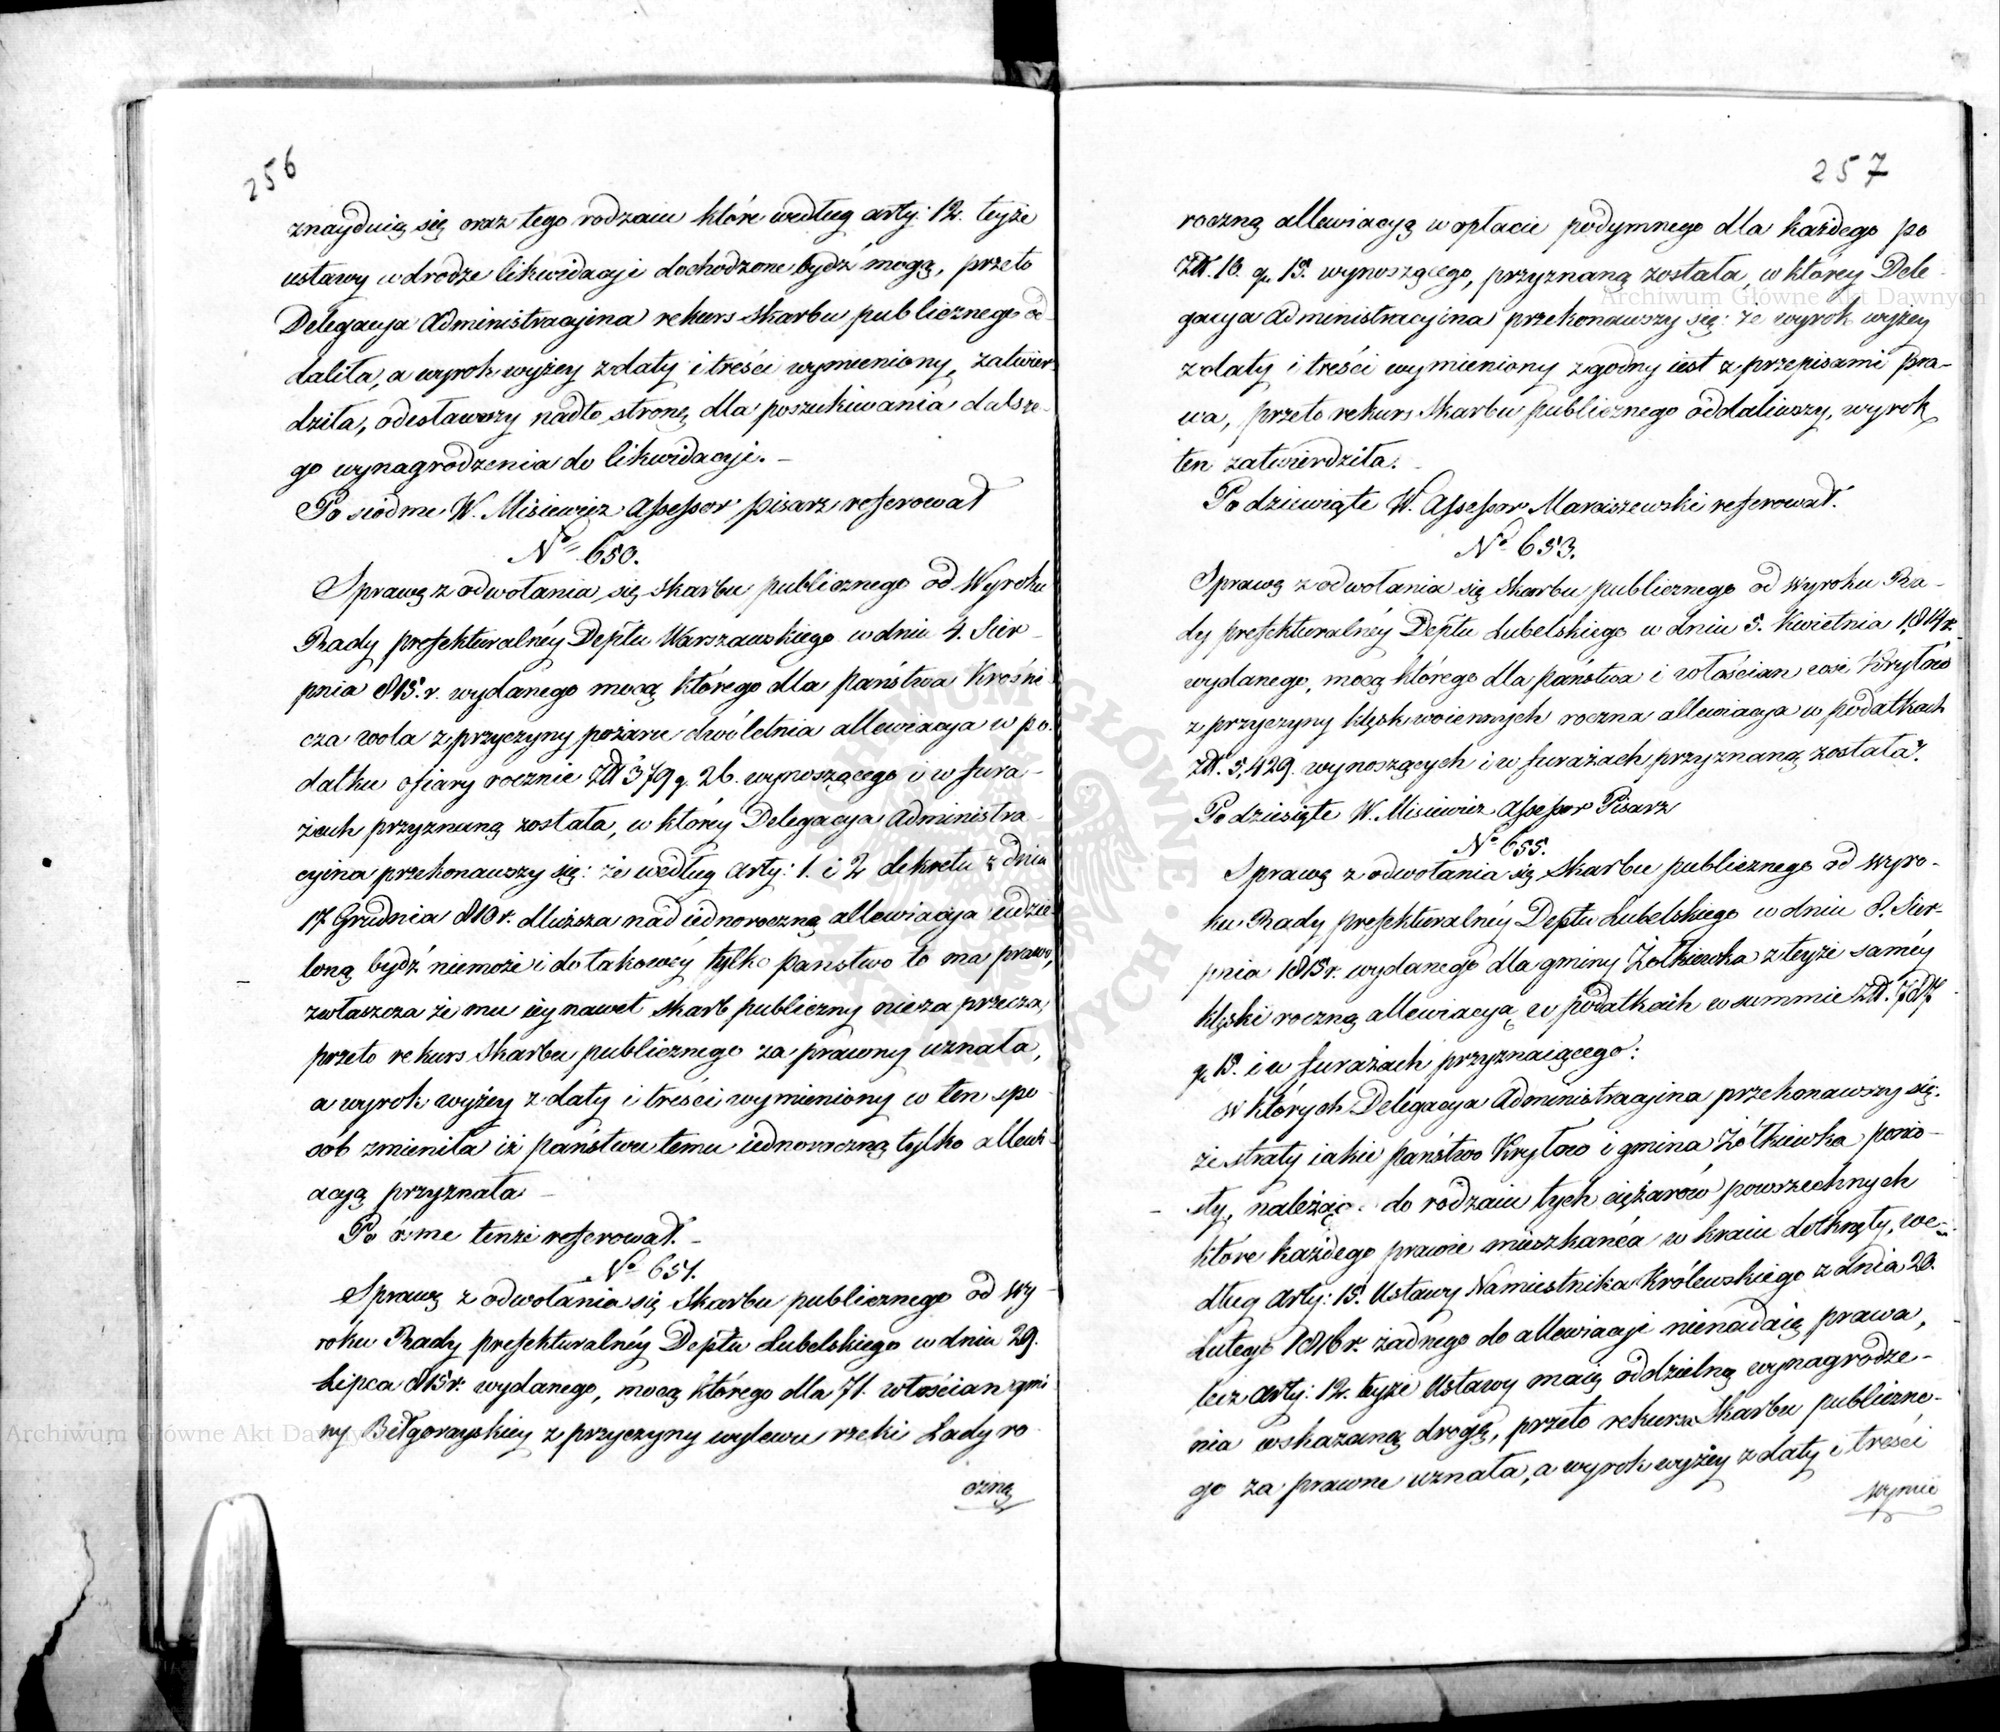 256
znayduią się oraz tego rodzaiu które według arty: 12. teyże
ustawy w drodze likwidacyi dochodzone bydź mogą, przeto
Delegacyja Administracyjna rekurs skarbu publicznego od-
daliła, a wyrok wyżey z daty i treści wymieniony, zatwier-
dziła, odesławszy nadto stronę dla poszukiwania dalsze-
go wynagrodzenia do likwidacyi. –
Po siódme W. Misiewicz Assessor pisarz referował
No 650.
Sprawę z odwołania się skarbu publicznego od Wyroku
Rady prefekturalnéy Deptu Warszawskiego w dniu 4. Sier-
pnia 815. r. wydanego mocą którego dla państwa Krośni
cza wola z przyczyny pożaru dwóletnia allewiacyja w po-
datku ofiary rocznie Złł 379 g. 26. wynoszącego i w fura-
żach przyznaną została, w którey Delegacyja Administra-
cyjna przekonawszy się: że według arty: 1. i 2 dekretu z dnia
17 Grudnia 810 r. dłuższa nad iednoroczną allewiacyja udzie-
loną bydź niemoże i do takowéy tylko państwo to ma prawo,
zwłaszcza że mu iey nawet skarb publiczny nieza przecza,
przeto rekurs skarbu publicznego za prawny uznała,
a wyrok wyżey z daty i treści wymieniony w ten spo
sób zmieniła iż państwu temu iednoroczną tylko allewi-
acyą przyznała –
Po ósme tenże referował. –
No 651.
Sprawę z odwołania się Skarbu publicznego od wy
roku Rady prefekturalnéy Deptu Lubelskiego w dniu 29.
Lipca 815 r. wydanego, mocą którego dla 71. włościan gmi
ny Biłgorayskiey z przyczyny wylewu rzeki Łady ro
czną
257
roczną allewiacyą w opłacie podymnego dla każdego po
Złł. 13. gr. 15. wynoszącego, przyznaną została, w którey Dele-
gacyja Administracyjna przekonawszy się: że wyrok wyżey
z daty i treści wymieniony zgodny iest z przepisami pra-
wa, przeto rekurs Skarbu publicznego oddaliwszy, wyrok
ten zatwierdziła. –
Po dziewiąte W. Assessor Marciszewski referował.
No 653.
Sprawę z odwołania się Skarbu publicznego od wyroku Ra-
dy prefekturalnéy Deptu Lubelskiego w dniu 5. Kwietnia 1814 r.
wydanego, mocą którego dla państwa i włościan wsi Kryłów
z przyczyny klęsk woiennych roczna allewiacyja w podatkach
Złł. 5,429. wynoszących i w furażach przyznaną została.
Po dziesiąte W. Misiewicz Assessor Pisarz
No 655.
Sprawę z odwołania się Skarbu publicznego od wyro-
ku Rady prefekturalnéy Deptu Lubelskiego w dniu 8. Sier-
pnia 1815 r. wydanego dla gminy Żołkiewka z teyże saméy
klęski roczną allewiacyą w podatkach w summie Złł. 787
gr. 15. i w furażach przyznaiącego:
w których Delegacyja Administracyjna przekonawszy się:
że straty iakie państwo Kryłów i gmina Żółkiewka ponio-
sły, należąc do rodzaiu tych ciężarów powszechnych
które każdego prawie mieszkańca w kraiu dotknęły, we-
dług Arty: 15. Ustawy Namiestnika Królewskiego z dnia 20.
Lutego 1816 r. żadnego do allewiacyi nienadaią prawa,
lecz arty: 12. teyże Ustawy maią oddzielną wynagrodze-
nia wskazaną drogę, przeto rekursa Skarbu publiczne-
go za prawne uznała, a wyrok wyżey z daty i treści
wymie
Archiwum Główne Akt Dawnych
Archiwum Główne Akt Dawnych